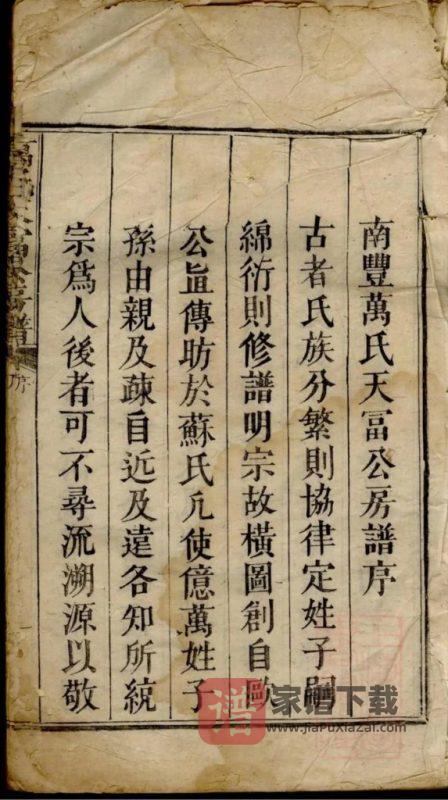 南豐萬氏天冨公房譜序
古者氏族分繁則協律定姓子嗣
綿衍則修譜明宗故橫圖創自歐
公直傳昉於蘇氏凢使億萬姓子
孫由親及疎自近及遠各知所統
宗爲人後者可不尋流溯源以敬
譜
序
譜 家谱下载
www.jiaPuxiazai.com